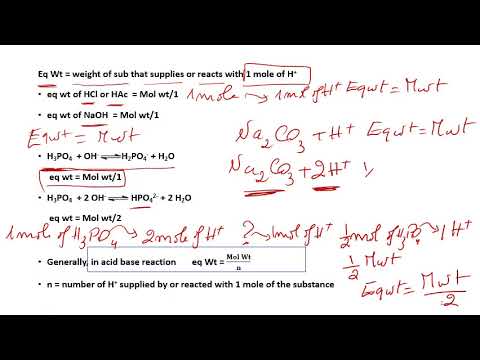 Eq Wt = weight of sub that supplies or reacts with 1 mole of H⁺
• eq wt of HCl or HAc = Mol wt/1 1mole → 1mol of H⁺ Eqwt = Mwt
• eq wt of NaOH = Mol wt/1
Eqwt = Mwt Na₂CO₃ + H⁺ Eqwt = Mwt
• H₃PO₄ + OH⁻ ⇌ H₂PO₄⁻ + H₂O
eq wt = Mol wt/1 Na₂CO₃ + 2H⁺
• H₃PO₄ + 2 OH⁻ ⇌ HPO₄²⁻ + 2 H₂O
eq wt = Mol wt/2
1mole of H₃PO₄ → 2mole of H⁺ ? → 1mol of H⁺ 1/2 mol of H₃PO₄ → 1 H⁺
1/2 Mwt
• Generally, in acid base reaction eq Wt = Mol Wt/n
Eqwt = Mwt/2
• n = number of H⁺ supplied by or reacted with 1 mole of the substance